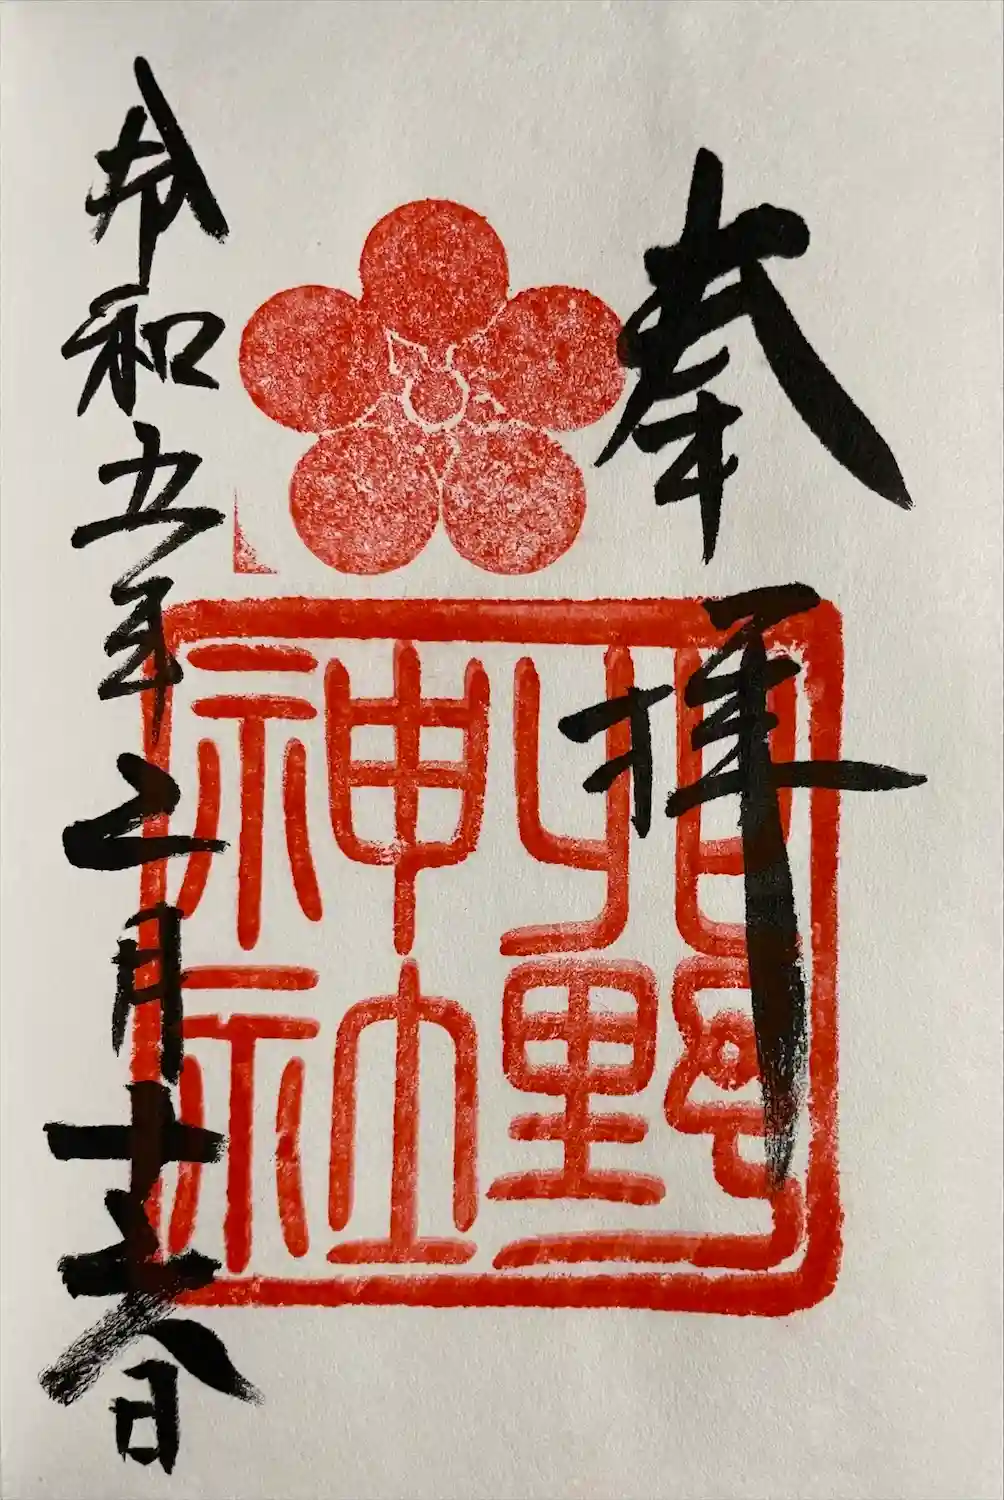 奉拝
北野
神社
令和五年二月十六日